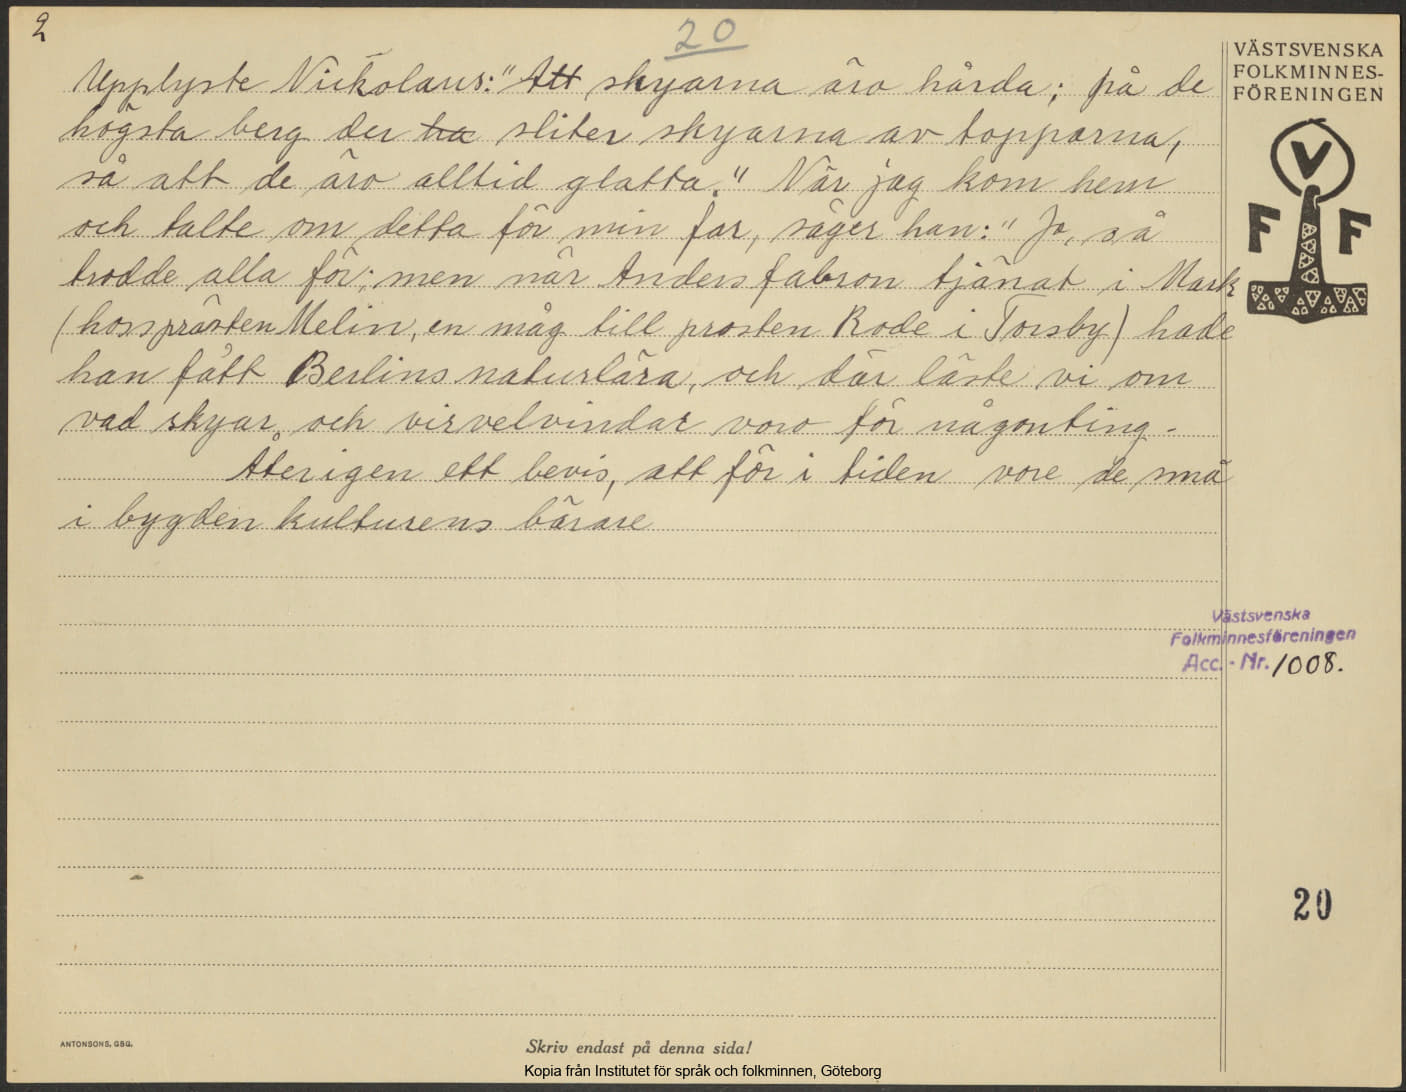 2
20
Upplyste Nickolaus: "Att skyarna äro hårda; på de
högsta berg der ha sliter skyarna av topparna,
så att de äro alltid glatta." När jag kom hem
och talte om detta för min far, säger han: "Ja, så
trodde alla för; men när Anders fabron tjänat i Mark
(hos prästen Melin, en måg till prosten Rode i Torsby) hade
han fått Berlins naturlära, och där läste vi om
vad skyar och virvelvindar voro för någonting.-
Återigen ett bevis, att för i tiden vore de små
i bygden kulturens bärare
VÄSTSVENSKA
FOLKMINNES-
FÖRENINGEN
V
F F
Västsvenska
Folkminnesföreningen
Acc.-Nr. 1008.
20
ANTONSONS, GBG.
Skriv endast på denna sida!
Kopia från Institutet för språk och folkminnen, Göteborg